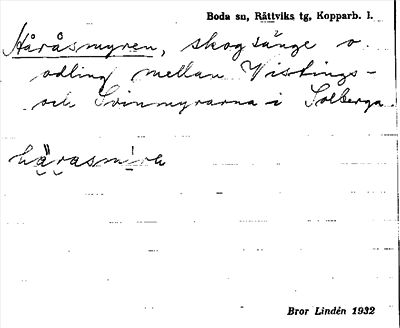 Boda sn, Rättviks tg, Kopparb. l.
Håråsmyren, skogsänge o.
odling mellan Vistings-
och Svinmyrarna i Solberga.
hä̬ra̬smi̠ra
Bror Lindén 1932